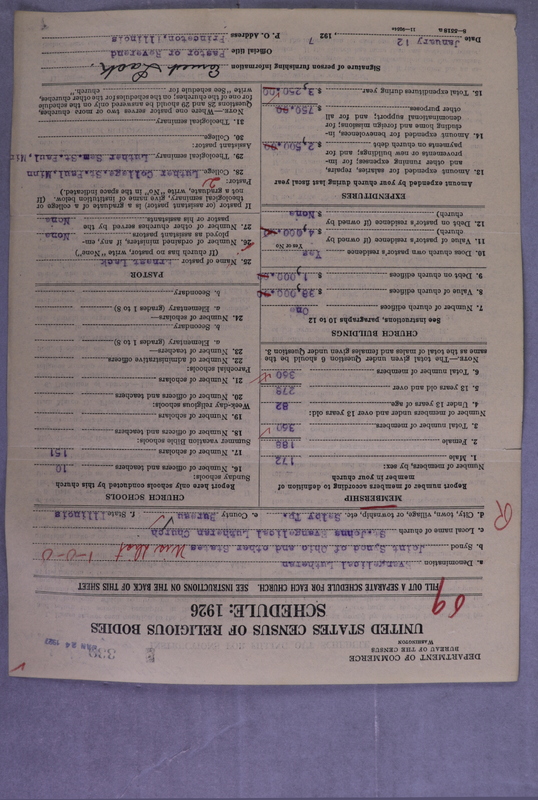 DEPARTMENT OF COMMERCE
BUREAU OF THE CENSUS
WASHINGTON
339
JAN 24 1927
UNITED STATES CENSUS OF RELIGIOUS BODIES
SCHEDULE: 1926
69
FILL OUT A SEPARATE SCHEDULE FOR EACH CHURCH. SEE INSTRUCTIONS ON THE BACK OF THIS SHEET
a. Denomination Evangelical Lutheran
b. Synod Joint Synod of Ohio and other States 1-0-0
c. Local name of church St.Johns Evangelical Lutheran Church
d. City, town, village, or township, etc. Selby Tp. e. County Bureau f. State Illinois
R
MEMBERSHIP
Report number of members according to definition of member in your church
Number of members, by sex:
1. Male 172
2. Female 188
3. Total number of members 360
Number of members under and over 13 years old:
4. Under 13 years of age 82
5. 13 years old and over 278
6. Total number of members 360
NOTE—The total given under Question 6 should be the same as the total of males and females given under Question 3.
CHURCH BUILDINGS
See instructions, paragraphs 10 to 12
7. Number of church edifices One
8. Value of church edifices $ 38,000.00
9. Debt on church edifices $ 1,000.00
10. Does church own pastor's residence Yes
Yes or No
11. Value of pastor's residence (if owned by church) $ 4,000.00
12. Debt on pastor's residence (if owned by church) $ None
EXPENDITURES
Amount expended by your church during last fiscal year
13. Amount expended for salaries, repairs, and other running expenses; for improvements or new buildings; and for payments on church debt $ 2,500.00
14. Amount expended for benevolences, including home and foreign missions; for denominational support; and for all other purposes $ 750.00
15. Total expenditures during year $ 3,250.00
CHURCH SCHOOLS
Report here only schools conducted by this church
Sunday schools:
16. Number of officers and teachers 10
17. Number of scholars 151
Summer vacation Bible schools:
18. Number of officers and teachers
19. Number of scholars
Week-day religious schools:
20. Number of officers and teachers
21. Number of scholars
Parochial schools:
22. Number of administrative officers
23. Number of teachers—
a. Elementary (grades 1 to 8)
b. Secondary
24. Number of scholars—
a. Elementary (grades 1 to 8)
b. Secondary
PASTOR
25. Name of pastor Ernest Lack
(If church has no pastor, write "None")
26. Number of ordained ministers, if any, employed as assistant pastors None
27. Number of other churches served by the pastor or his assistants None
If pastor (or assistant pastor) is a graduate of a college or theological seminary, give name of institution below. (If not a graduate, write "No" in the space indicated.)
Pastor: 2
28. College Luther College,St.Paul Minn
29. Theological seminary Luther Sem.St.Paul,
Assistant pastor:
30. College
31. Theological seminary
NOTE.—Where one pastor serves two or more churches, Questions 28 and 29 should be answered only on the schedule for one of the churches; on the schedules for the other churches, write "See schedule for church."
Signature of person furnishing information Ernest Lack.
Official title Pastor or Reverend
Date January 12, 1927 P. O. Address Princeton,Illinois